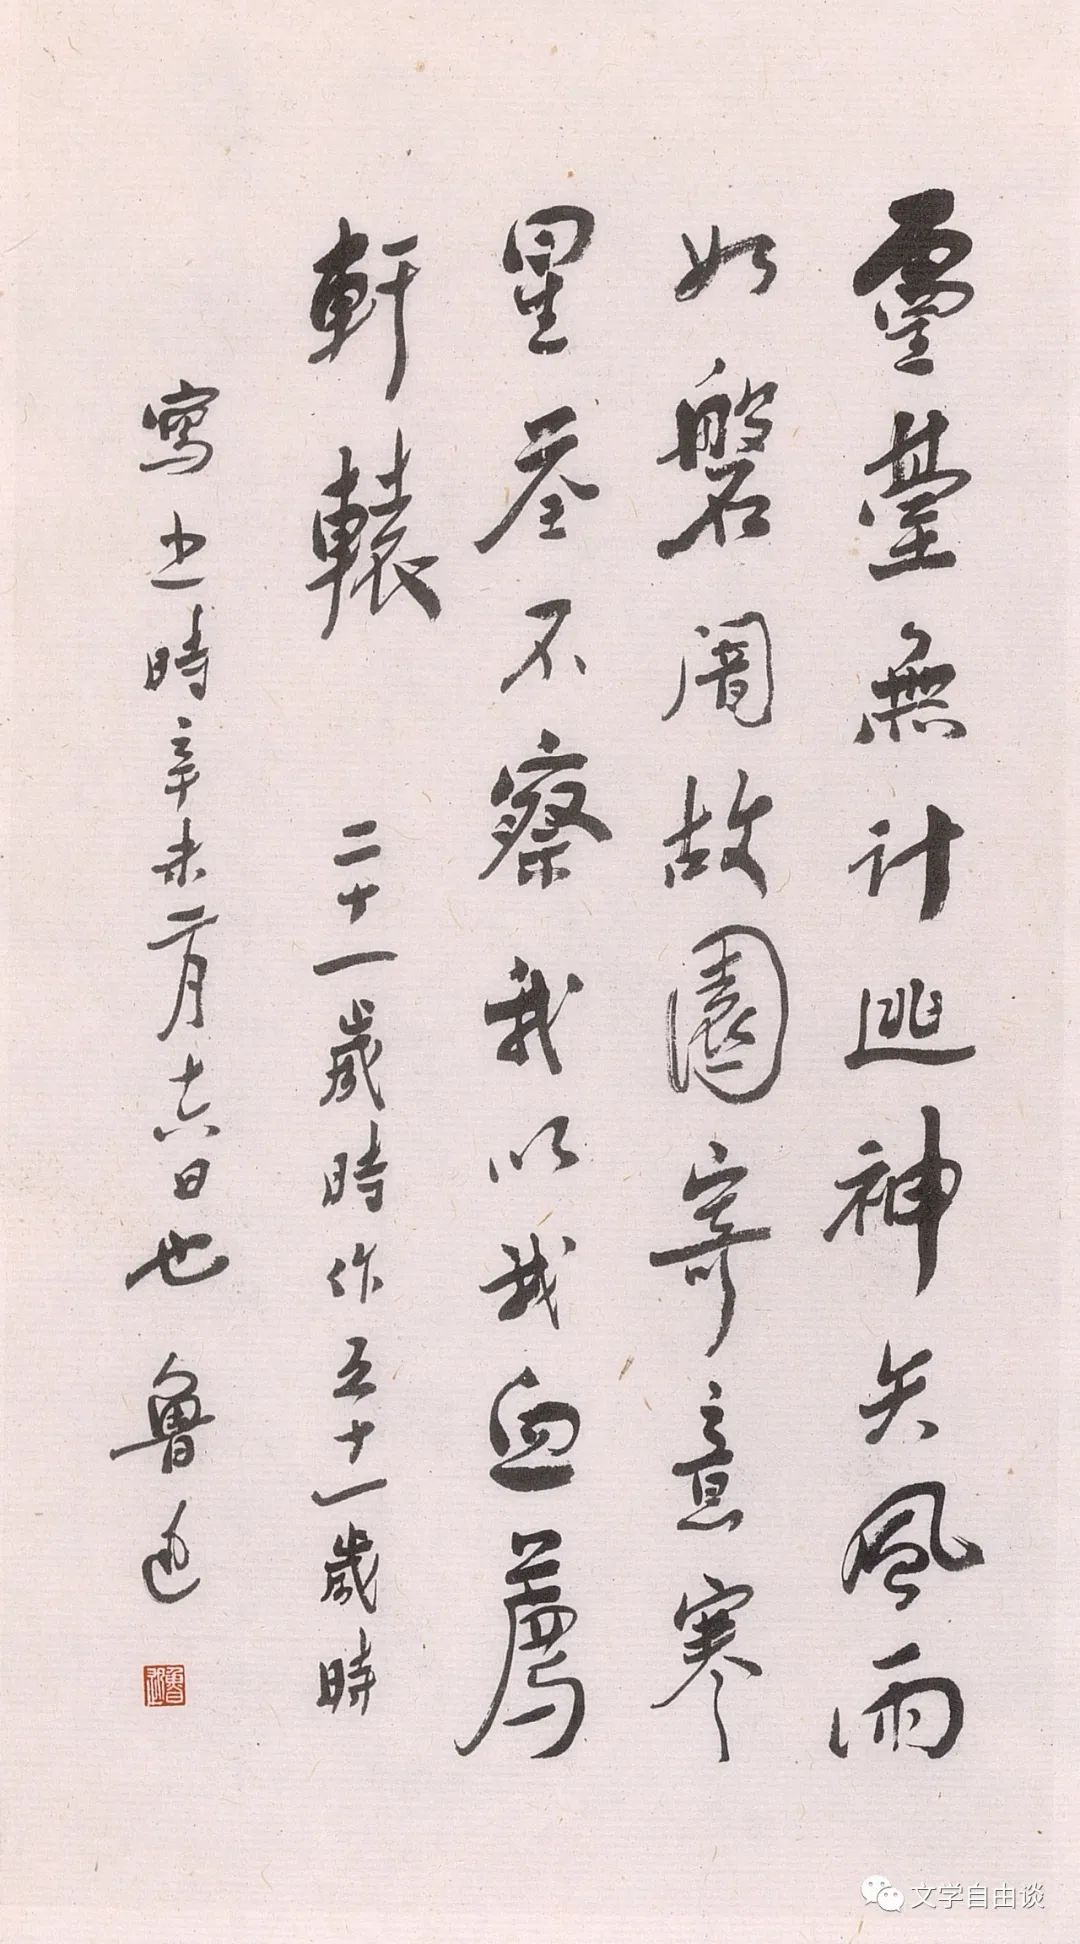 靈臺無計逃神矢風雨
如磐闇故園寄意寒
星荃不察我以我血薦
軒轅 二十一歲時作五十一歲時
寫之時辛未二月十六日也 魯迅
魯迅
文学自由谈